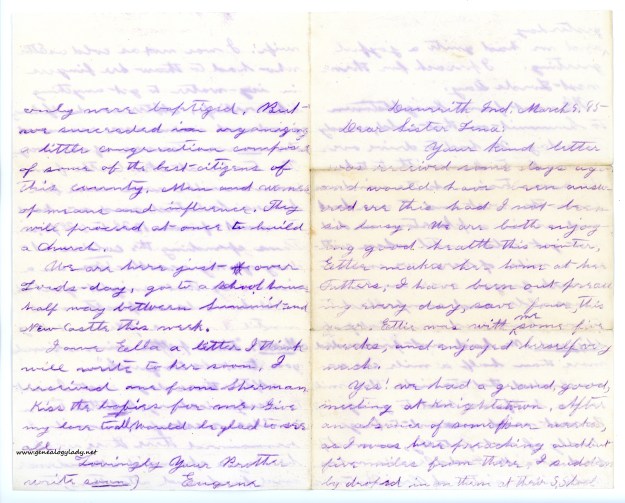 Ind. March 5, 95
Dear Sister Lena:
Your kind letter
was received some days ago
and would have been answ-
ered ere this had I not been
so busy. We are both enjoy-
ing good health this winter.
Ettie makes her home at her
Father's, I have been out preach
ing every day, save four, this
Ettie was with me some five
weeks, and enjoyed herself very
much.
Yes! we had a grand, good,
meeting at Knightstown. After
an absence of some four weeks,
as I was been preaching about
five miles from there, I sudden
ly droped in on them at their S. School
only were baptized. But
we succeeded in organizing
a little congregation composed
of some of the best citizens of
this county. Men and women
of means and influence. They
will proceed at once to build
a Church.
We are here just over
Lord's-day, go to a school house
half way between Summit and
New Castle this week.
I owe Ella a letter I think
will write to her soon. I
received one from Sherman
Kiss the babies for me. Give
my love to all, Would be glad to see
all.
Lovingly Your Brother
write soon) Eugene
www.genealogylady.net